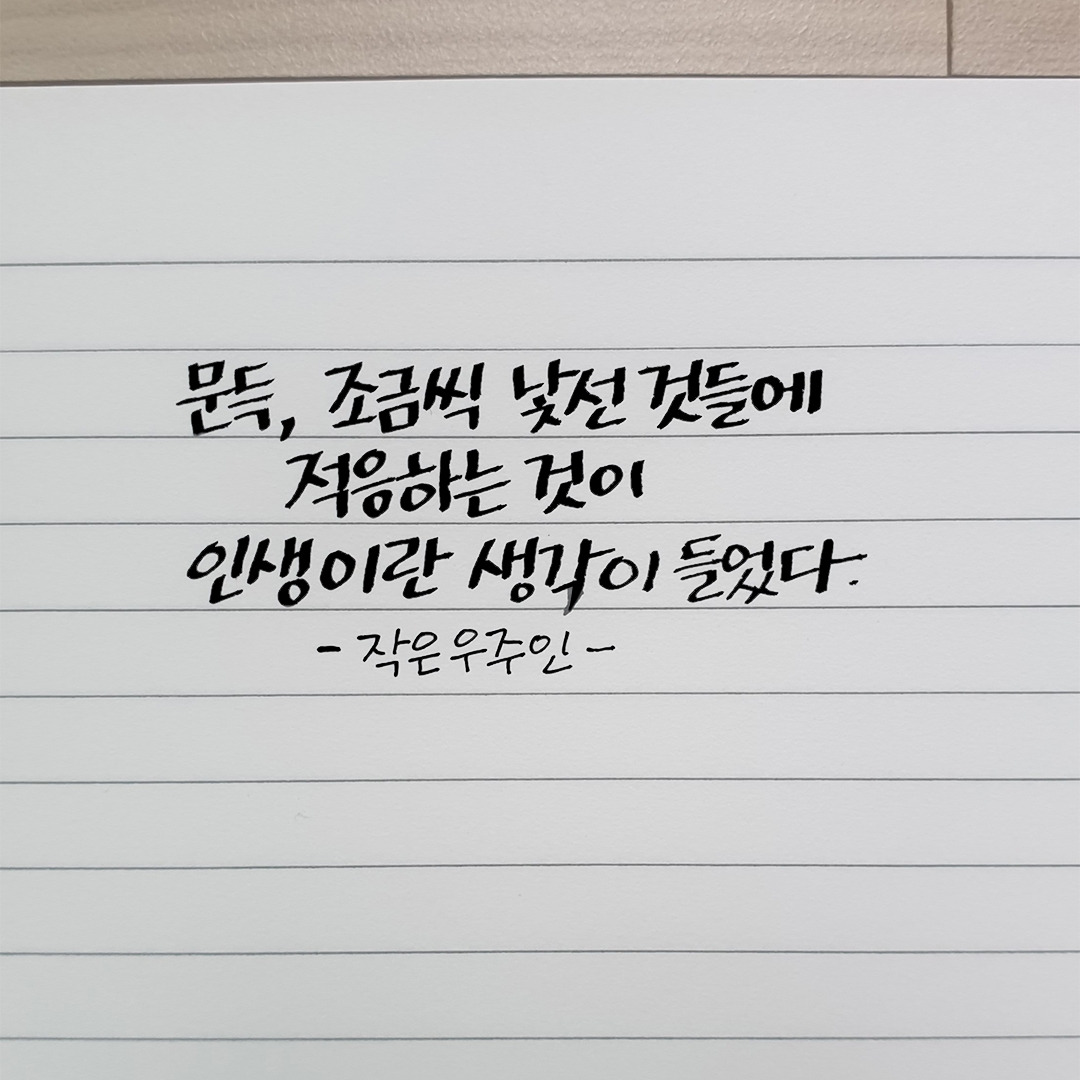 문득, 조금씩 낯선 것들에
적응하는 것이
인생이란 생각이 들었다.
- 작은우주인 -